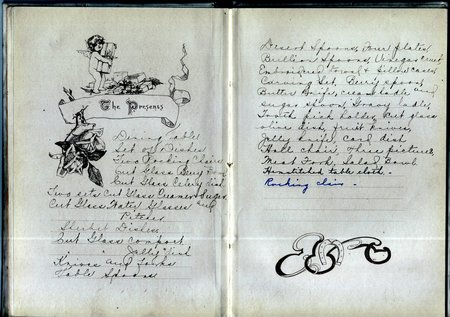 The Presents
Dining Table
Set of Dishes
Two Rocking Chairs
Cut Glass Berry Bowl
Cut Glass Celery dish
Two sets Cut Glass Creamer & Sugar
Cut Glass Water Glasses and
Pitcher
Sherbet Dishes
Cut Glass Comport
Jelly Dish
Knives and Forks
Table Spoons
Desert Spoons, Four plates
Bullion Spoons, Vinegar cruet
Embroidered Towel & Pillow cases
Carving Set, Berry spoon
Butter Knife, cream ladle and
sugar spoon, Gravy ladle,
Tooth pick holder, Cut glass
olive dish, fruit knives,
Jelly knife, Card dish
Hall chair, Three pictures
Meat Fork, Salad Bowl
Hemstitched table cloth.
Rocking chair.